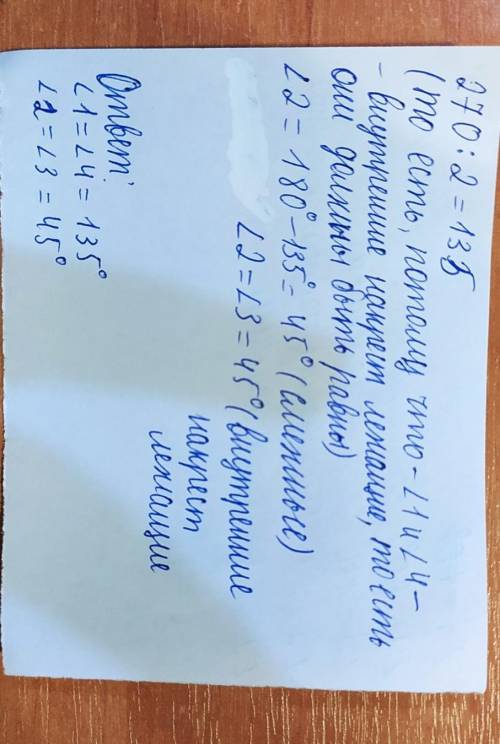 270:2=135
(то есть, потому что - ∠1 и ∠4 -
- внутренние накрест лежащие, то есть
они должны быть равны)
∠2 = 180° - 135° = 45° (смежные)
∠2 = ∠3 = 45° (внутренние
накрест
лежащие
Ответ:
∠1 = ∠4 = 135°
∠2 = ∠3 = 45°